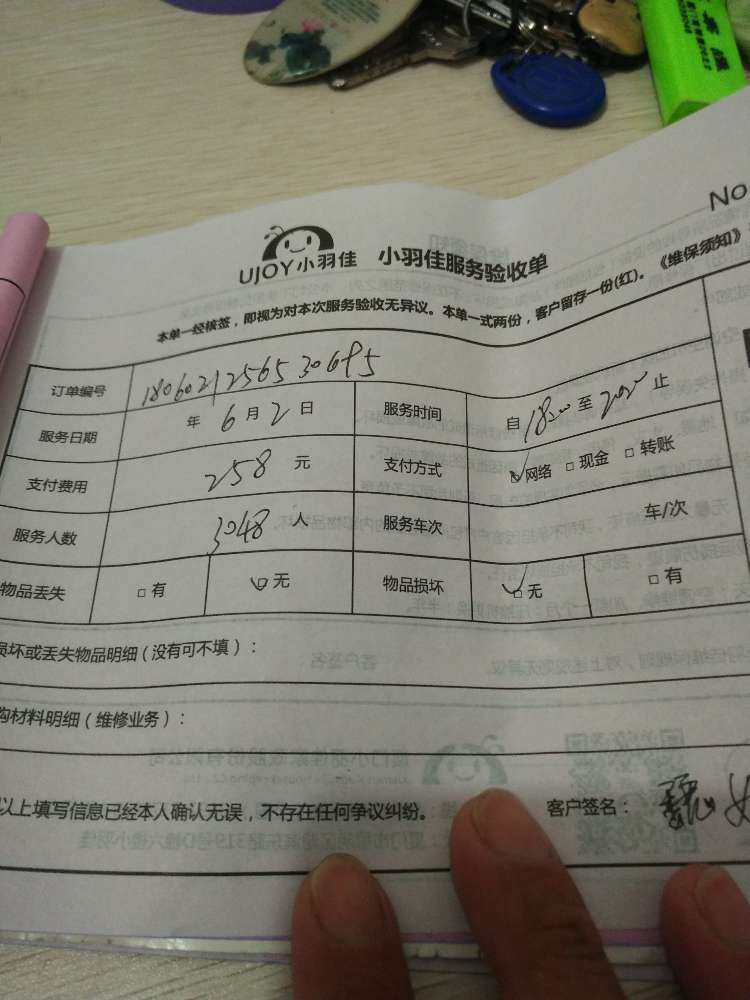 No
UJOY小羽佳 小羽佳服务验收单
本单一经核签，即视为对本次服务验收无异议。本单一式两份，客户留存一份(红)。《维保须知》
订单编号 1806021256530695
服务日期 年6月2日 服务时间 自1800至2020止
支付费用 258元 支付方式 ☑网络 □现金 □转账
服务人数 3048人 服务车次 车/次
物品丢失 □有 ☑无 物品损坏 ☑无 □有
损坏或丢失物品明细（没有可不填）：
购材料明细（维修业务）：
以上填写信息已经本人确认无误，不存在任何争议纠纷。 客户签名：